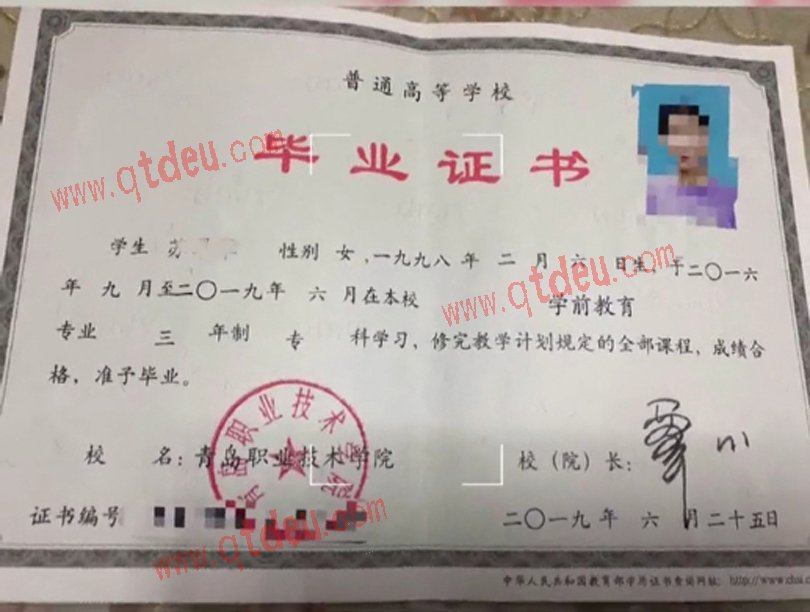 普通高等学校
毕业证书
www.qtdeu.com
学生 苏 性别 女,一九九八年 二 月 六 日生,于二〇一六
年 九 月至二〇一九年 六 月在本校 学前教育
www.qtdeu.com
专业 三 年制 专 科学习,修完教学计划规定的全部课程,成绩合
格,准予毕业。
青岛职业技术学院
校 名:青岛职业技术学院 校(院)长:
证书编号 二〇一九年 六 月二十五日
www.qtdeu.com
中华人民共和国教育部学历证书查询网址: http://www.chsi.c